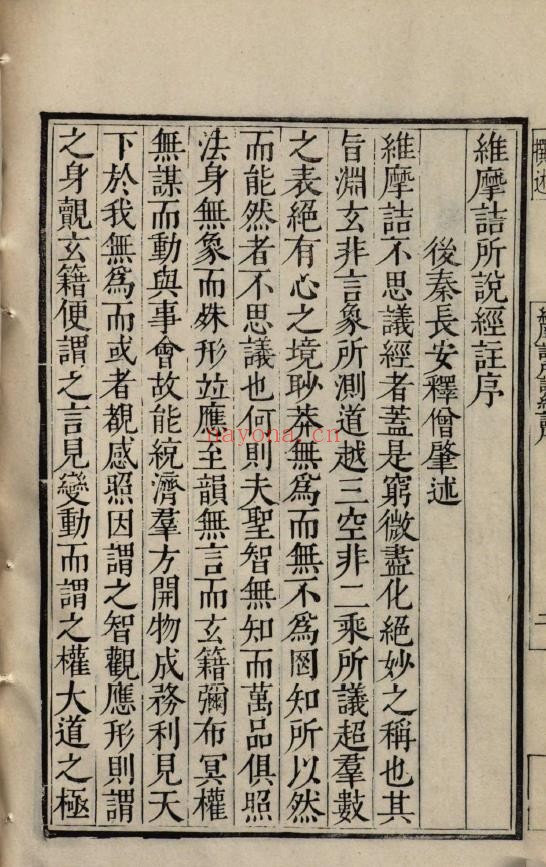 維摩詰所說經註序
後秦長安釋僧肇述
維摩詰不思議經者葢是窮微盡化絕妙之稱也其
旨淵玄非言象所測道越三空非二乘所議超羣數
之表絕有心之境眇莽無爲而無不爲罔知所以然
而能然者不思議也何則夫聖智無知而萬品俱照
法身無象而殊形竝應至韻無言而玄籍彌布冥權
無謀而動與事會故能統濟羣方開物成務利見天
下於我無爲而或者覩感照因謂之智觀應形則謂
之身覿玄籍便謂之言見變動而謂之權大道之極
nayona.cn